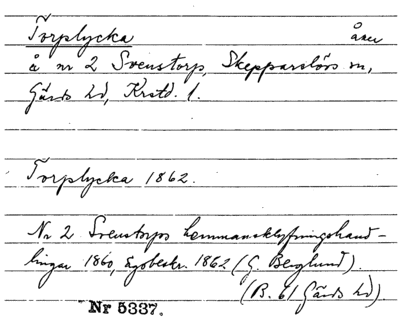 Torplycka åker
å nr 2 Svenstorp, Skepparslövs sn,
Gärds hd, Krstd. l.
Torplycka 1862.
Nr 2 Svenstorps hemmansklyfningshand-
lingar 1860, Egobeskr. 1862 (G. Berglund).
(B. 61 Gärds hd).
Nr 5337.